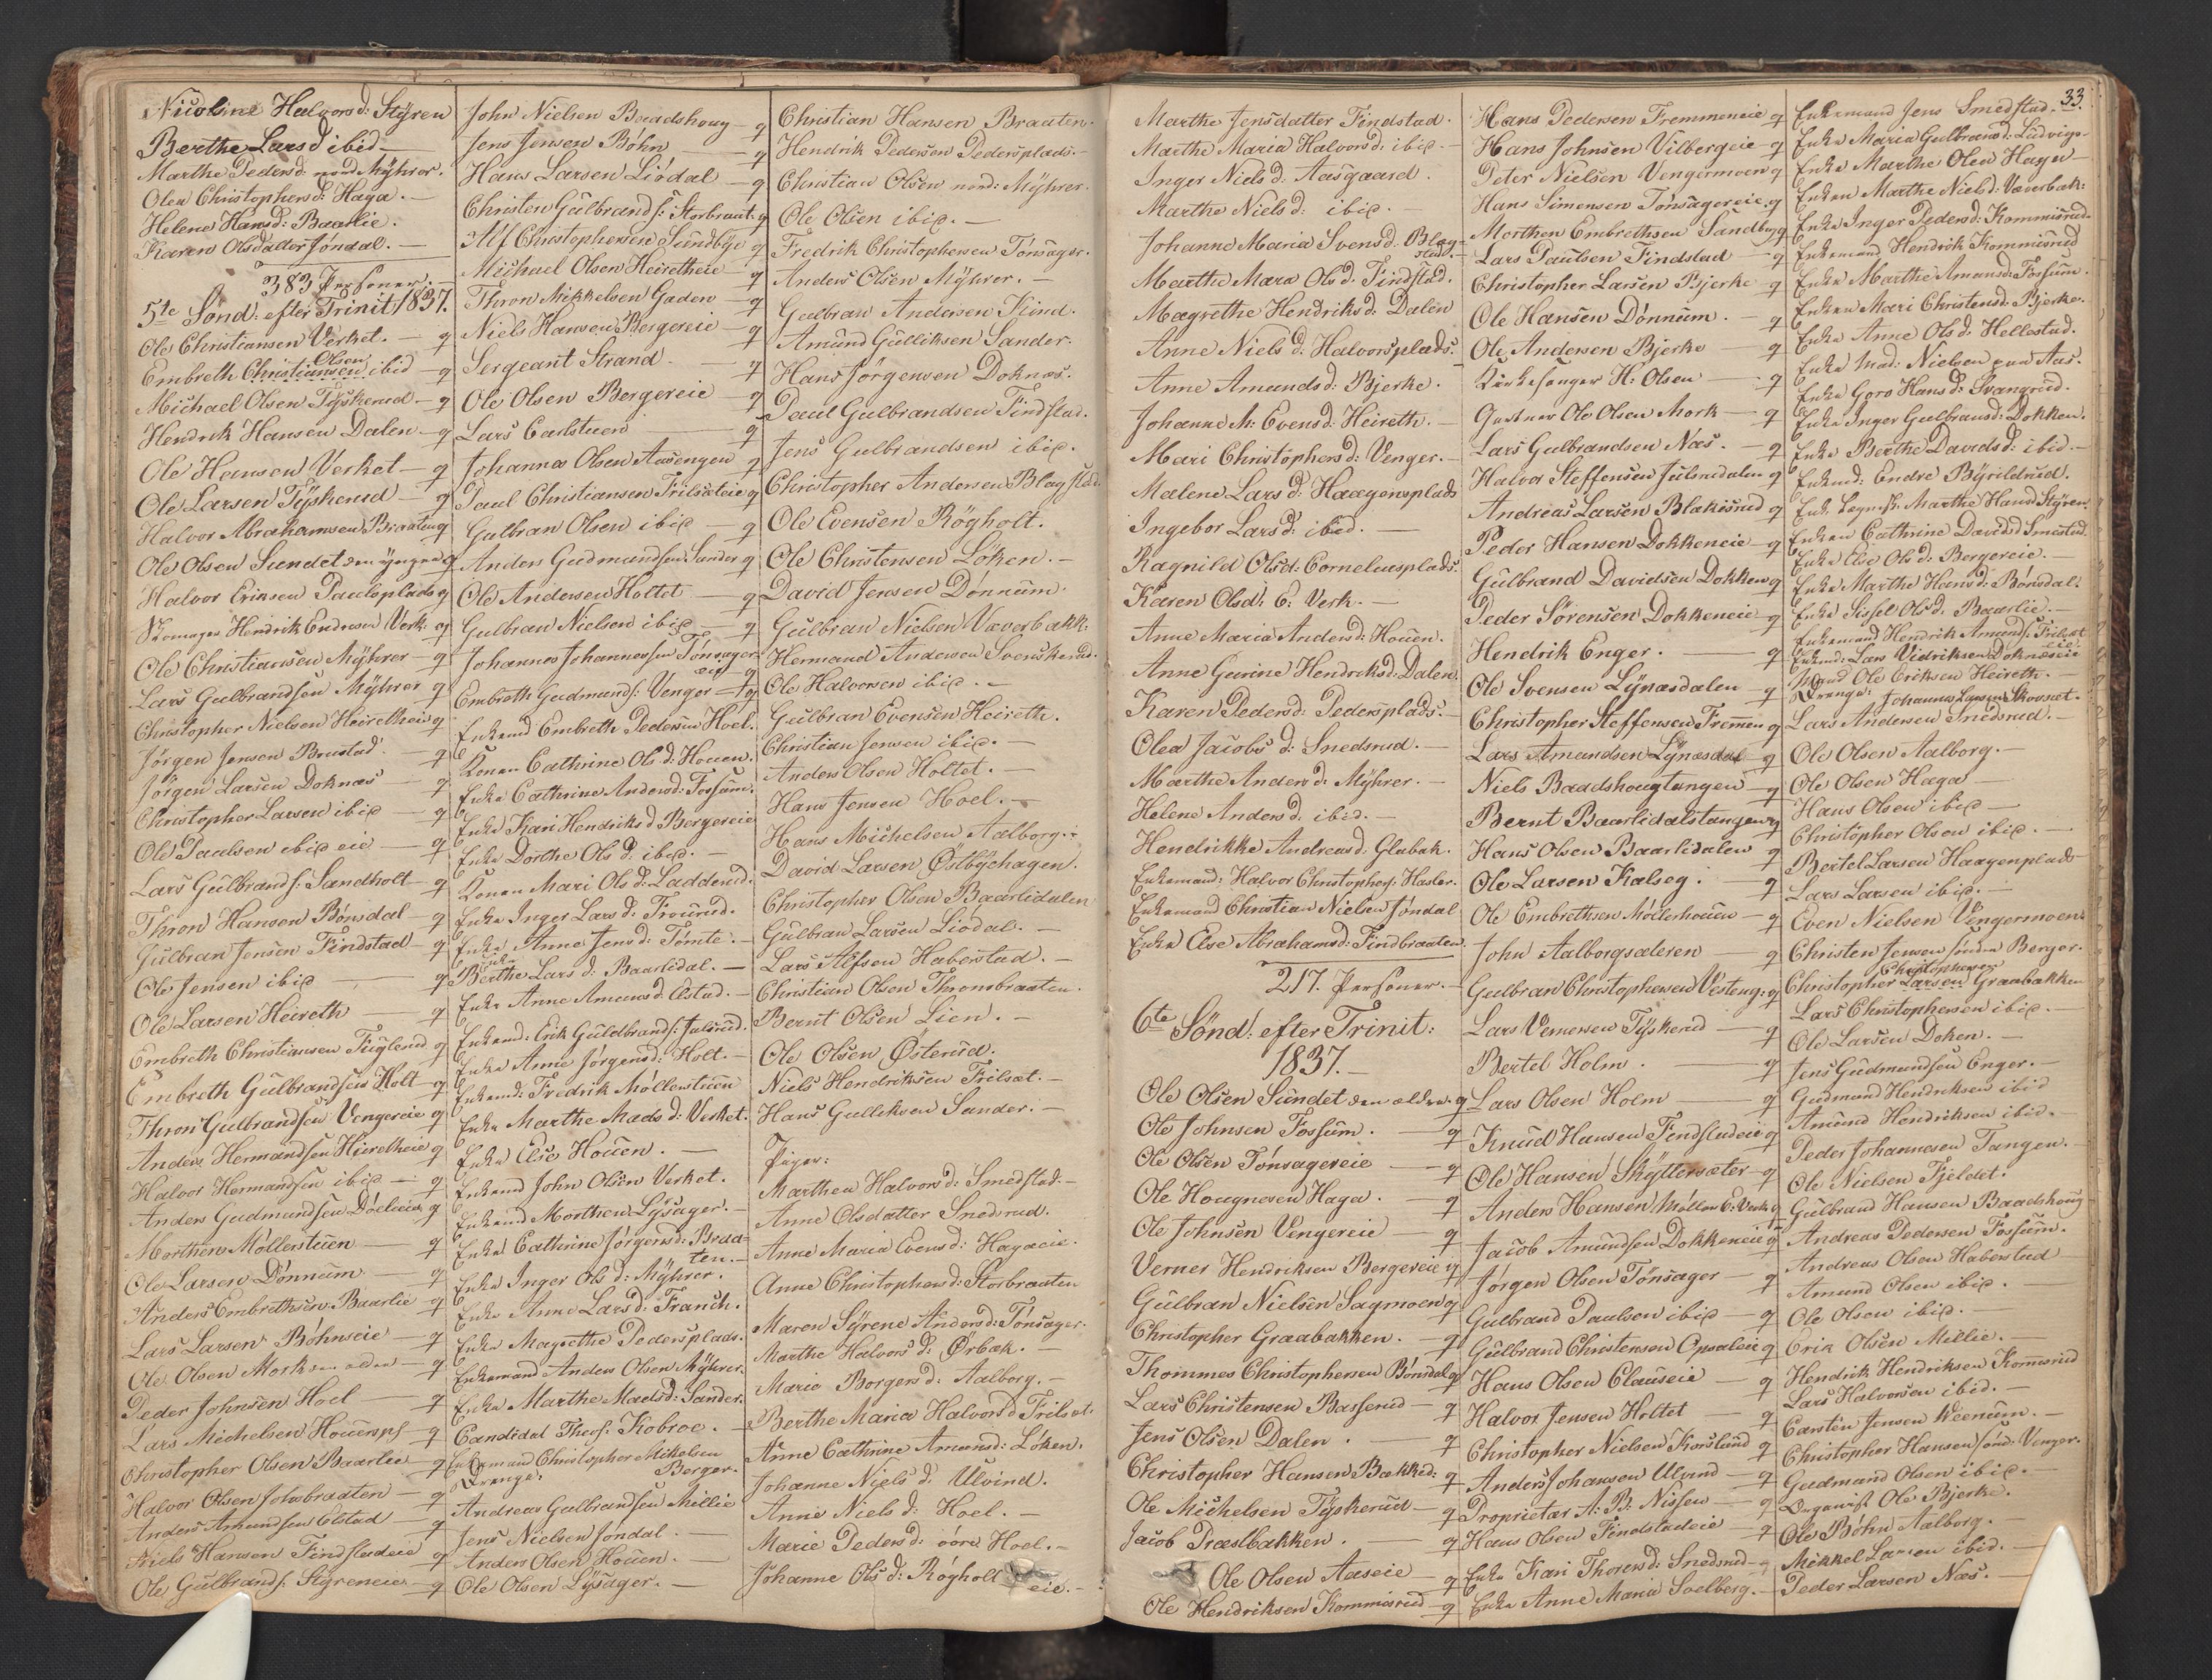 Nicoline Halvorsd: Styren
Berthe Larsd ibid —
Marthe Pedersd: nord Myhrer.
Olea Christophersd: Haga. —
Helene Hansd: Baarlie.
Karen Olsdatter Jöndal. —
383 Personer. —
5te Sönd: efter Trinit: 1837.
Ole Christiansen Verket. — g
Embreth Christiansen Olsen ibid — g
Michael Olsen Tyskerud — g
Hendrik Hansen Dalen — g
Ole Hansen Verket — g
Ole Larsen Tyskerud — g
Halvor Abrahamsen Braaten g
Ole Olsen Sundet den yngre g
Halvor Ericsen Paulsplads g
Skomager Hendrik Endresen Verk. g
Ole Christiansen Myhrer — g
Lars Gulbrandsen Myhrer g
Christopher Nielsen Heiretheie g
Jörgen Jensen Brustad — g
Jörgen Larsen Doknæs — g
Christopher Larsen ibid — g
Ole Paulsen ibid eie — g
Lars Gulbrands: Sandholt — g
Thron Hansen Bönsdal — g
Gulbran Jensen Findstad — g
Ole Jensen ibid — g
Ole Larsen Heireth — g
Embreth Christiansen Fuglerud g
Embreth Gulbrandsen Holt — g
Thron Gulbrandsen Vengereie g
Anders Hermandsen Hieretheie g
Halvor Hermandsen ibid — g
Anders Gudmundsen Döelieie g
Morthen Möllerstuen — g
Ole Larsen Dönnum — g
Anders Embrethsen Baarlie g
Lars Larsen Böhnseie — g
Ole Olsen Mork den ældre — g
Peder Johnsen Hoel — g
Lars Michelsen Houenspl — g
Christopher Olsen Baarlie — g
Halvor Olsen Johsbraaten — g
Anders Amundsen Elstad — g
Niels Hansen Findstadeie g
Ole Gulbrands: Styreneie — g
John Nielsen Baadshoug — g
Jens Jensen Böhn — g
Hans Larsen Liödal — g
Christen Gulbrands: Storbraat: g
Alf Christophersen Sundbye g
Michael Olsen Heiretheie — g
Thron Mikkelsen Gaden — g
Niels Hansen Bergereie — g
Sergeant Strand — g
Ole Olsen Bergereie — g
Lars Carlstuen — g
Johannes Olsen Aasengen g
Paul Christiansen Frilsæteie g
Gulbran Olsen ibid — g
Anders Gudmundsen Sander g
Ole Andersen Holtet — g
Gulbran Nielsen ibid — g
Johannes Johannessen Tönsager-
eie g
Embreth Gudmunds: Venger — g
Enkemd Embreth Pedersen Hoel.
Konen Cathrine Ols d: Houen.
Enke Cathrine Andersd: Fossum.
Enke Kari Hendriksd Bergereie
Enke Dorthe Ols d: ibid. —
Konen Mari Ols d: Ladderud.
Enke Inger Lars d: Frourud.
Enke Anne Jens d: Tomte. —
Enke Berthe Lars d: Baarlidal. —
Enke Anne Amunsd Elstad. —
Enkemd: Erik Guldbrands: Julsrud.
Enke Anne Jörgensd: Holt. —
Enkemd: Fredrik Möllerstuen
Enke Marthe Mads d: Verket.
Enke Else Houen. —
Enkemd John Olsen Verket.
Enkemd Morthen Lysager. —
Enke Cathrine Jörgensd: Braa-
ten. —
Enke Inger Ols d: Myhrer.
Enke Anne Larsd: Franch.
Enke Magrethe Pedersplads.
Enkemand Anders Olsen Myhrer.
Enke Marthe Madsd: Sander.
Candidat Theol: Kobroe. —
Enkemand Christopher Mikelsen
Drenge: Berger.
Andreas Gulbrandsen Millie
Jens Nielsen Jöndal. —
Anders Olsen Houen. —
Ole Olsen Lysager. —
Christian Hansen Braaten.
Hendrik Pedersen Pedersplads. —
Christian Olsen nord: Myhrer.
Ole Olsen ibid. —
Fredrik Christophersen Tönsager.
Anders Olsen Myhrer. —
Gulbran Andersen Kind.
Amund Gulliksen Sander.
Hans Jörgensen Doknæs.
Paul Gulbrandsen Findstad.
Jens Gulbrandsen ibid.
Christopher Andersen Blagstad.
Ole Evensen Rögholt.
Ole Christensen Löken. —
David Jensen Dönnum.
Gulbran Nielsen Væverbakk:
Hermand Andersen Svenskerud.
Ole Halvorsen ibid. —
Gulbran Evensen Heireth.
Christian Jensen ibid. —
Anders Olsen Holtet. —
Hans Jensen Hoel. —
Hans Michelsen Aalborg. —
David Larsen Östbyehagen.
Christopher Olsen Baarlidalen
Gulbran Larsen Liödal. —
Lars Alfsen Haberstad. —
Christian Olsen Thronsbraaten.
Bernt Olsen Lien. —
Ole Olsen Österud.
Niels Hendriksen Frilsæt. —
Hans Gulleksen Sander. —
Piger:
Marthea Halvorsd: Smedstad. —
Anne Olsdatter Snedsrud.
Anne Maria Evensd: Hagaeie.
Anne Christophersd: Storbraaten
Maren Syrene Andersd: Tönsager.
Marthe Halvors d: Ørbæk. —
Marie Borgersd: Aalborg. —
Berthe Maria Halvorsd Frilsæt.
Anne Cathrine Amunsd: Löken.
Johanne Niels d: Ulvind.
Anne Niels d: Hoel. —
Marie Pedersd: övre Hoel. —
Johanne Ols d: Rögholt eie. —
33.
Marthe Jensdatter Findstad.
Marthe Maria Halvorsd: ibid. —
Inger Niels d: Aasgaard.
Marthe Niels d: ibid. —
Johanne Maria Svensd. Blag-
stad. —
Marthe Mara Ols d: Findstad.
Magrethe Hendriksd: Dalen
Anne Niels d: Halvorsplads.
Anne Amunds d: Bjerke.
Johanne M: Evensd: Heireth. —
Mari Christophersd: Venger. —
Malene Lars d: Haagensplads
Ingebor Lars d: ibid. —
Ragnild Olsd: Corneliusplads.
Karen Olsd: E: Verk. —
Anne Maria Andersd: Houen.
Anne Gurine Hendriksd: Dalen.
Karen Pedersd: Pedersplads. —
Olea Jacobs d: Snedsrud. —
Marthe Anders d: Myhrer. —
Helene Anders d: ibid. —
Hendrikke Andreasd: Glabak.
Enkemand: Halvor Christophers: Hasler.
Enkemand Christian Nielsen Jöndal
Enke Else Abrahamsd: Findbraaten.
217. Personer. —
6te Sönd: efter Trinit:
1837. —
Ole Olsen Sundet den ældre. g
Ole Johnsen Fossum. — g
Ole Olsen Tönsagereie — g
Ole Hougnesen Haga. — g
Ole Johnsen Vengereie — g
Verner Hendriksen Bergereie g
Gulbran Nielsen Sagmoen g
Christopher Graabakken. — g
Thommes Christophersen Bönsdal g
Lars Christensen Basserud — g
Jens Olsen Dalen. — g
Christopher Hansen Bækked: g
Ole Michelsen Tyskerud — g
Jacob Præstbakken. — g
Ole Olsen Aaseie — g
Ole Hendriksen Kommisrud — g
Hans Pedersen Fremmeneie g
Hans Johnsen Vilbergeie — g
Peter Nielsen Vengermoen g
Hans Simensen Tönsagereie g
Morthen Embrethsen Sandbye g
Lars Paulsen Findstad — g
Christopher Larsen Bjerke g
Ole Hansen Dönnum. — g
Ole Andersen Bjerke g
Kirkesanger H: Olsen — g
Gartner Ole Olsen Mork — g
Lars Gulbrandsen Næs. — g
Halvor Steffensen Julsrudalen g
Andreas Larsen Blakisrud g
Peder Hansen Dokkeneie — g
Gulbrand Davidsen Dokken g
Peder Sörensen Dokkeneie — g
Hendrik Enger. — g
Ole Svensen Lynæsdalen — g
Christopher Steffensen Fremen g
Lars Amundsen Lynæsdal — g
Niels Baadshougtangen — g
Bernt Baarlidalstangen g
Hans Olsen Baarlidalen g
Ole Larsen Kalseg. — g
Ole Embrethsen Möllerhouen — g
John Aalborgsæteren — g
Gulbran Christophersen Vesteng: g
Lars Vernersen Tyskerud — g
Bertel Holm. — g
Lars Olsen Holm — g
Knud Hansen Findstadeie g
Ole Hansen Skyttersæter — g
Anders Hansen Möller E: Verk g
Jacob Amundsen Dokkeneie g
Jörgen Olsen Tönsager — g
Gulbrand Paulsen ibid — g
Gulbrand Christensen Opsaleie g
Hans Olsen Clauseie — g
Halvor Jensen Holtet — g
Christopher Nielsen Korslund g
Anders Johansen Ulvind — g
Proprietær A: B: Nissen — g
Hans Olsen Findstadeie — g
Enke Kari Thorersd: Snedsrud —
Enke Anne Maria Soelberg. —
Enkemand Jens Smedstad.
Enke Maria Gulbransd: Ludvigs-
Enke Marthe Olea Hagen —
Enken Marthe Nielsd: Væverbak:
Enke Inger Pedersd: Kommisrud.
Enkemand Hendrik Kommisrud
Enke Marthe Amunsd: Fossum.
Enken Mari Christensd: Bjerke.
Enke Anne Ols d: Hellestad.
Enke Mad: Nielsen paa Aas.
Enke Goro Hans d: Svangrud.
Enke Inger Gulbransd: Dokken.
Enke Berthe Davids d: ibid. —
Enkemd: Endre Byrildrud.
Enk. Lægns: Marthe Hansd: Styren.
Enken Cathrine Davidsd Smestad
Enke Else Ols d: Bergereie. —
Enke Marthe Hansd: Bönsdal.
Enke Sissel Ols d. Baarlie. —
Enkemand Hendrik Amunds: Frilset
eie:
Enkemd: Lars Vidriksen Doknæseie
Mand Ole Eriksen Heireth. —
Drenge: Johannes Larsen Skovset.
Lars Andersen Snedsrud. —
Ole Olsen Aalborg. —
Ole Olsen Haga —
Hans Olsen ibid —
Christopher Olsen ibid. —
Bertel Larsen Haagenplads
Lars Larsen ibid. —
Even Nielsen Vengermoen
Christen Jensen söndre Berger.
Christopher Larsen Christophersen Graabakken
Lars Christophersen ibid. —
Ole Larsen Doken. —
Jens Gudmundsen Enger. —
Gudmund Hendriksen ibid
Amund Hendriksen ibid. —
Peder Johannesen Tangen. —
Ole Nielsen Fjeldet.
Gulbrand Hansen Baadshoug
Andreas Pedersen Fossum. —
Andreas Olsen Haberstad —
Amund Olsen ibid.
Ole Olsen ibid. —
Erik Olsen Millie. —
Hendrik Hendriksen Kommisrud
Lars Halvorsen ibid. —
Carsten Jensen Weenum. —
Christopher Hansen sönd: Venger.
Gudmand Olsen ibid. —
Organist Ole Bjerke.
Ole Böhn Aalborg. —
Mikkel Larsen ibid. —
Peder Larsen Næs. —